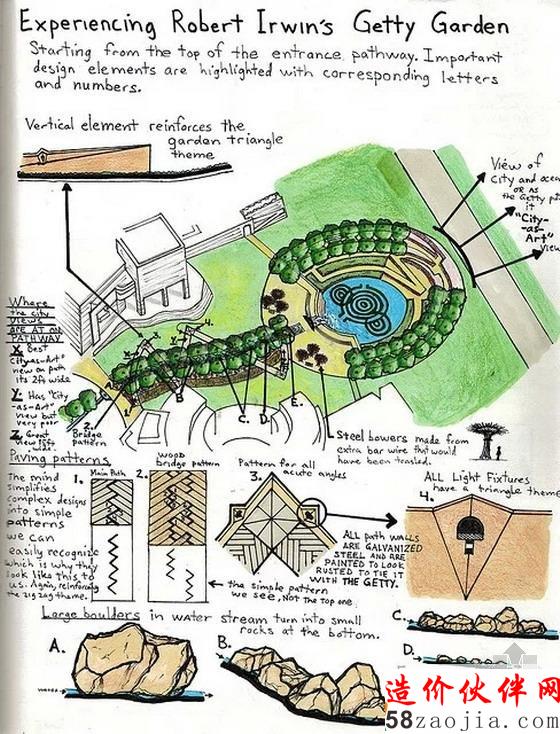 Experiencing Robert Irwin's Getty Garden
Starting from the top of the entrance pathway. Important
design elements are highlighted with corresponding letters
and numbers.
Vertical element reinforces the
garden triangle
theme
View of
city and ocean
or as
the Getty puts
it
"City-
-as-
Art"
View
Where
the city
views
are at on
pathway
X. Best
"City-as-Art"
view on path
its 2ft wide
Y. Has "city
-as-Art"
view but
very poor
Z. Great
view
wide
1.
2.
Bridge
pattern
3.
4.
A.
B.
C.
D.
E.
Steel bowers made from
extra bar wire that would
have been trashed.
Paving patterns
The mind
simplifies
complex designs
into simple
patterns
we can
easily recognize
which is why they
look like this to
us. Again, reinforcing
the zig zag theme.
1. Main Path
2. wood
bridge pattern
the simple pattern
we see, NOT the top one.
3. Pattern for all
acute angles
ALL path walls
are galvanized
steel and are
painted to look
rusted to tie it
with the Getty.
ALL Light Fixtures
have a triangle theme
4.
Large boulders in water stream turn into small
rocks at the bottom.
A.
B.
C.
D.
造价伙伴网
58zaojia.com